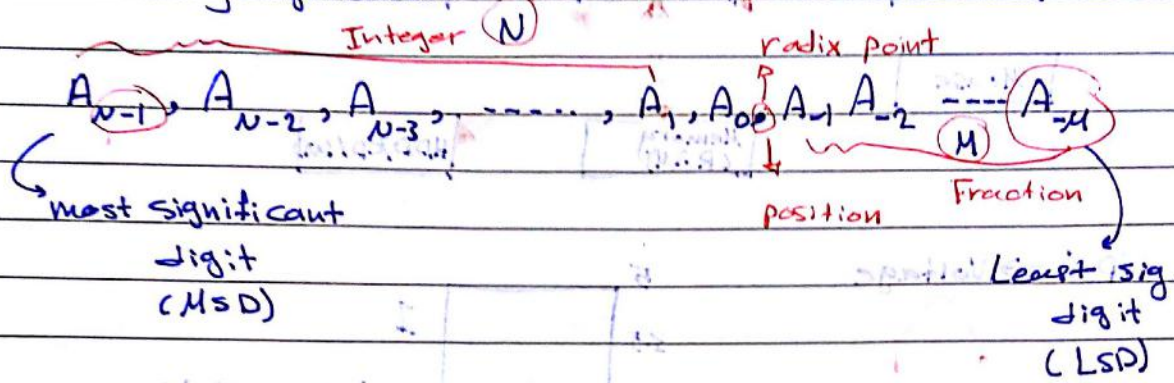 Integer N
radix point
A_{N-1}, A_{N-2}, A_{N-3}, -------, A_1, A_0 . A_{-1} A_{-2} ---- A_{-M}
M
Fraction
position
most significant
digit
(MSD)
Least sig
digit
(LSD)